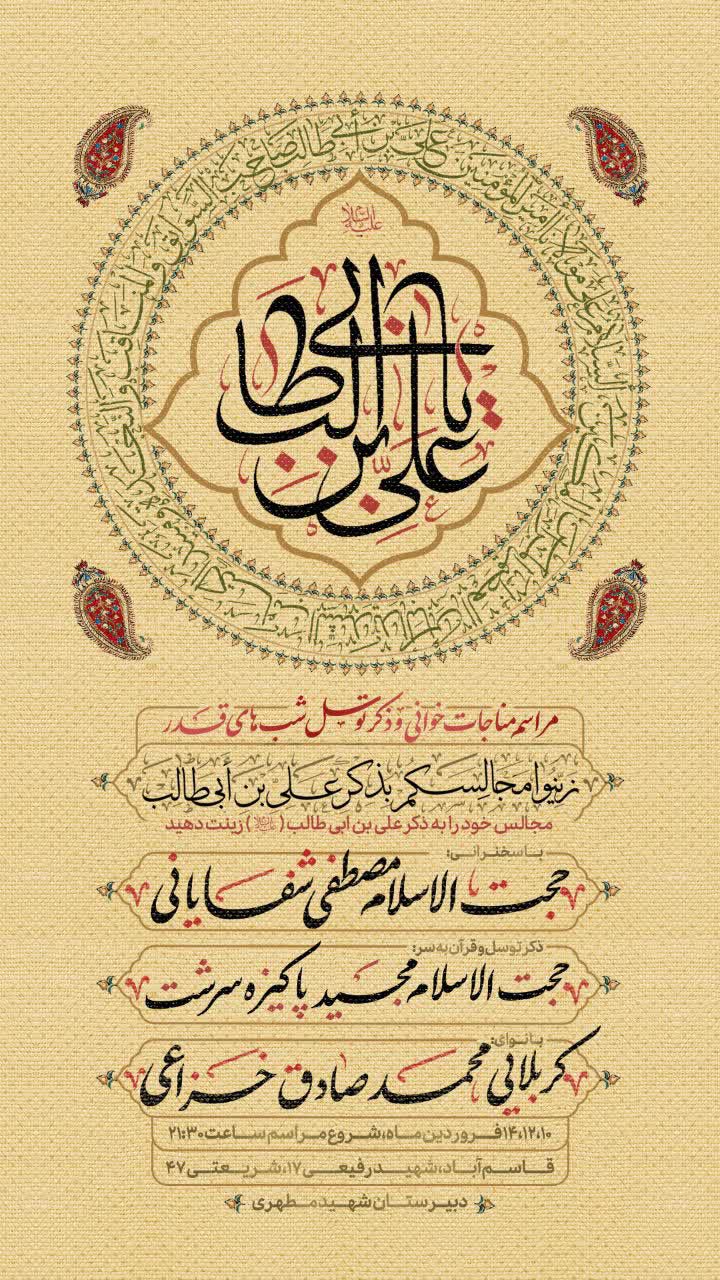 علیه السلام
یا علی بن ابی طالب
السلام علی مولانا امیر المؤمنین علی بن أبی طالب صاحب السوابق والمناقب والنجدة
مراسم مناجات خوانی و ذکر توسل شب های قدر
زینوا مجالسکم بذکر علی بن أبی طالب
مجالس خود را به ذکر علی بن ابی طالب (علیه السلام) زینت دهید
با سخنرانی:
حجت الاسلام مصطفی شفایانی
ذکر توسل و قرآن به سر:
حجت الاسلام مجید پاکیزه سرشت
با نوای:
کربلایی محمد صادق خزاعی
۱۴،۱۲،۱۰ فروردین ماه، شروع مراسم ساعت ۲۱:۳۰
قاسم آباد، شهید رفیعی ۱۷، شریعتی ۴۷
دبیرستان شهید مطهری